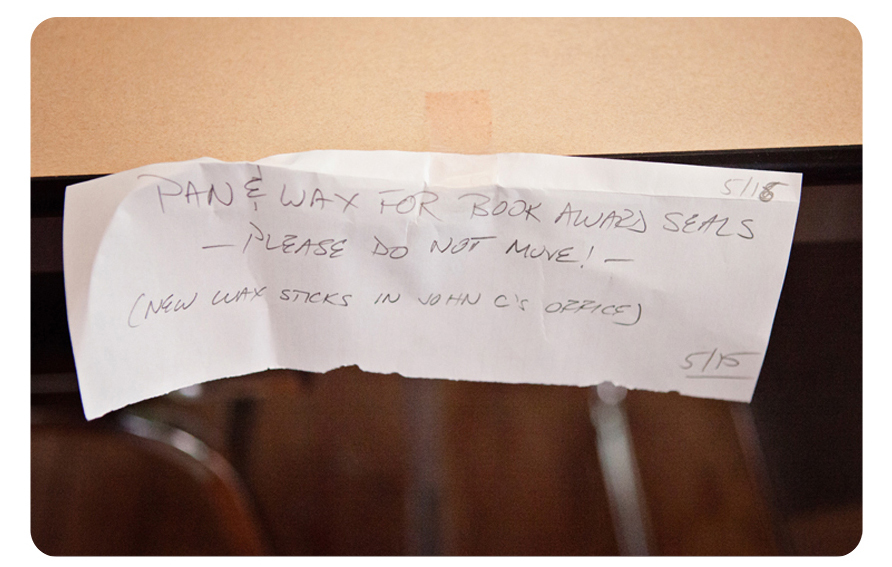 5/18
PAN & WAX FOR BOOK AWARD SEALS
— PLEASE DO NOT MOVE! —
(NEW WAX STICKS IN JOHN C'S OFFICE)
5/15